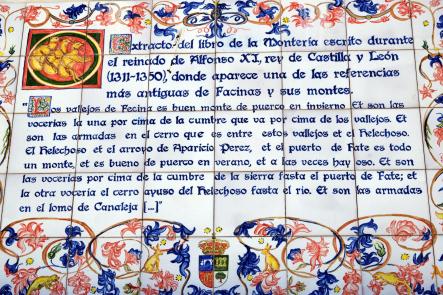 Extracto del libro de la Montería escrito durante
el reinado de Alfonso XI, rey de Castilla y León
(1311-1350), donde aparece una de las referencias
más antiguas de Facinas y sus montes.
"Los vallejos de Facina es buen monte de puerco en invierno. Et son las
vocerías la una por cima de la cumbre que va por cima de los vallejos. Et
son las armadas en el cerro que es entre estos vallejos et el Helechoso.
El Helechoso et el arroyo de Aparicio Perez, et el puerto de Fate es todo
un monte, et es bueno de puerco en verano, et a las veces hay oso. Et son
las vocerías por cima de la cumbre de la sierra fasta el puerto de Fate; et
la otra vocería el cerro ayuso del Helechoso fasta el río. Et son las armadas
en el lomo de Canaleja [...]"